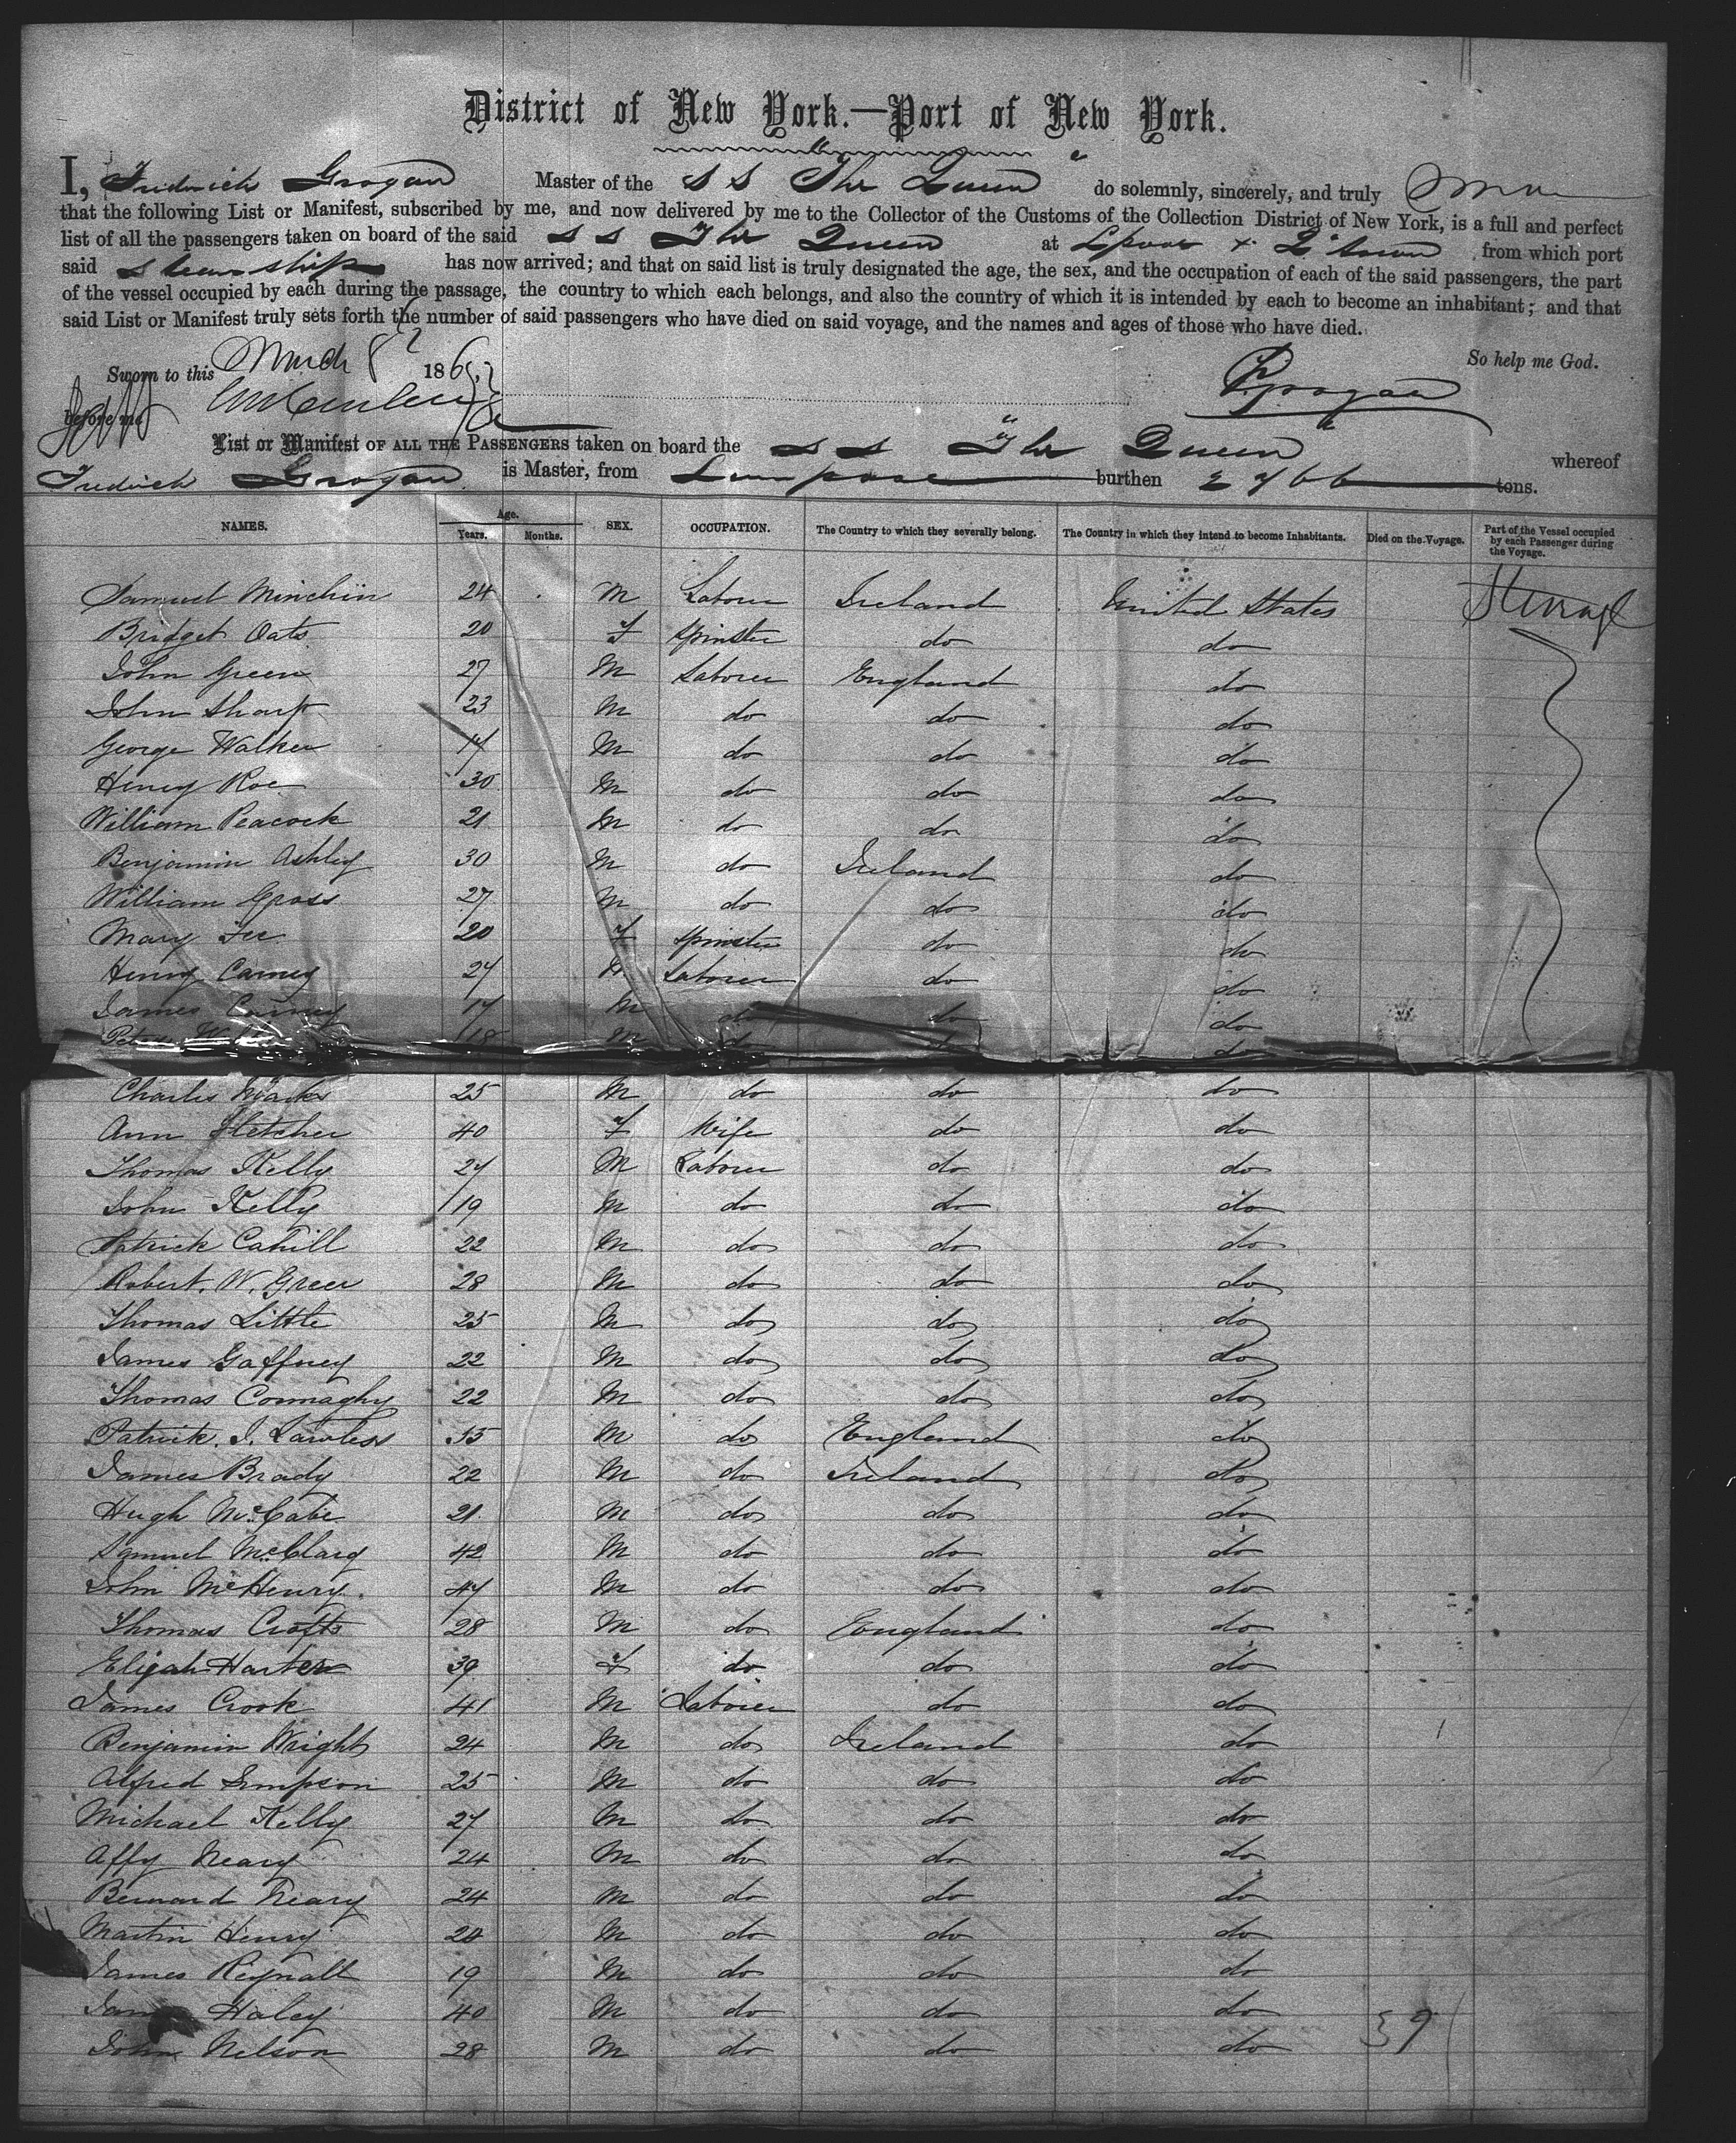 District of New York.—Port of New York.
I, Fredrick Grogan Master of the S S "The Queen" do solemnly, sincerely, and truly
that the following List or Manifest, subscribed by me, and now delivered by me to the Collector of the Customs of the Collection District of New York, is a full and perfect
list of all the passengers taken on board of the said S S The Queen at Lpool & Q'town from which port
said steamship has now arrived; and that on said list is truly designated the age, the sex, and the occupation of each of the said passengers, the part
of the vessel occupied by each during the passage, the country to which each belongs, and also the country of which it is intended by each to become an inhabitant; and that
said List or Manifest truly sets forth the number of said passengers who have died on said voyage, and the names and ages of those who have died.
So help me God.
Sworn to this March 8 186
before me
F Grogan
List or Manifest OF ALL THE PASSENGERS taken on board the S S "The Queen" whereof
Fredrick Grogan is Master, from Liverpool burthen tons.
NAMES. Age. Years. Months. SEX. OCCUPATION. The Country to which they severally belong. The Country in which they intend to become Inhabitants. Died on the Voyage. Part of the Vessel occupied by each Passenger during the Voyage.
Samuel Minchin 24 M Laborer Ireland United States Steerage
Bridget Oats 20 F Spinster do do
John Green 27 M Laborer England do
John Sharp 23 M do do do
George Walker 17 M do do do
Henry Roe 30 M do do do
William Peacock 21 M do do do
Benjamin Ashley 30 M do Ireland do
William Gross 27 M do do do
Mary Fee 20 F Spinster do do
Henry Carney 27 M Laborer do do
James Carney 17 M do do do
18 M do do do
Charles 25 M do do do
Ann Fletcher 40 F Wife do do
Thomas Kelly 27 M Laborer do do
John Kelly 19 M do do do
Patrick Cahill 22 M do do do
Robert. W. Greer 28 M do do do
Thomas Little 25 M do do do
James Gaffney 22 M do do do
Thomas Connaghy 22 M do do do
Patrick. J. Lawless 35 M do England do
James Brady 22 M do Ireland do
Hugh McCabe 21 M do do do
Samuel McClarg 42 M do do do
John McHenry. 47 M do do do
Thomas Crofts 28 M do England do
Elijah Harter 39 F do do do
James Crook 41 M Laborer do do
Benjamin Wright 24 M do Ireland do
Alfred Simpson 25 M do do do
Michael Kelly 27 M do do do
Affy Neary 24 M do do do
Bernard Neary 24 M do do do
Martin Henry 20 M do do do
James Reynall 19 M do do do
James Haley 40 M do do do
John Nelson 28 M do do do
39